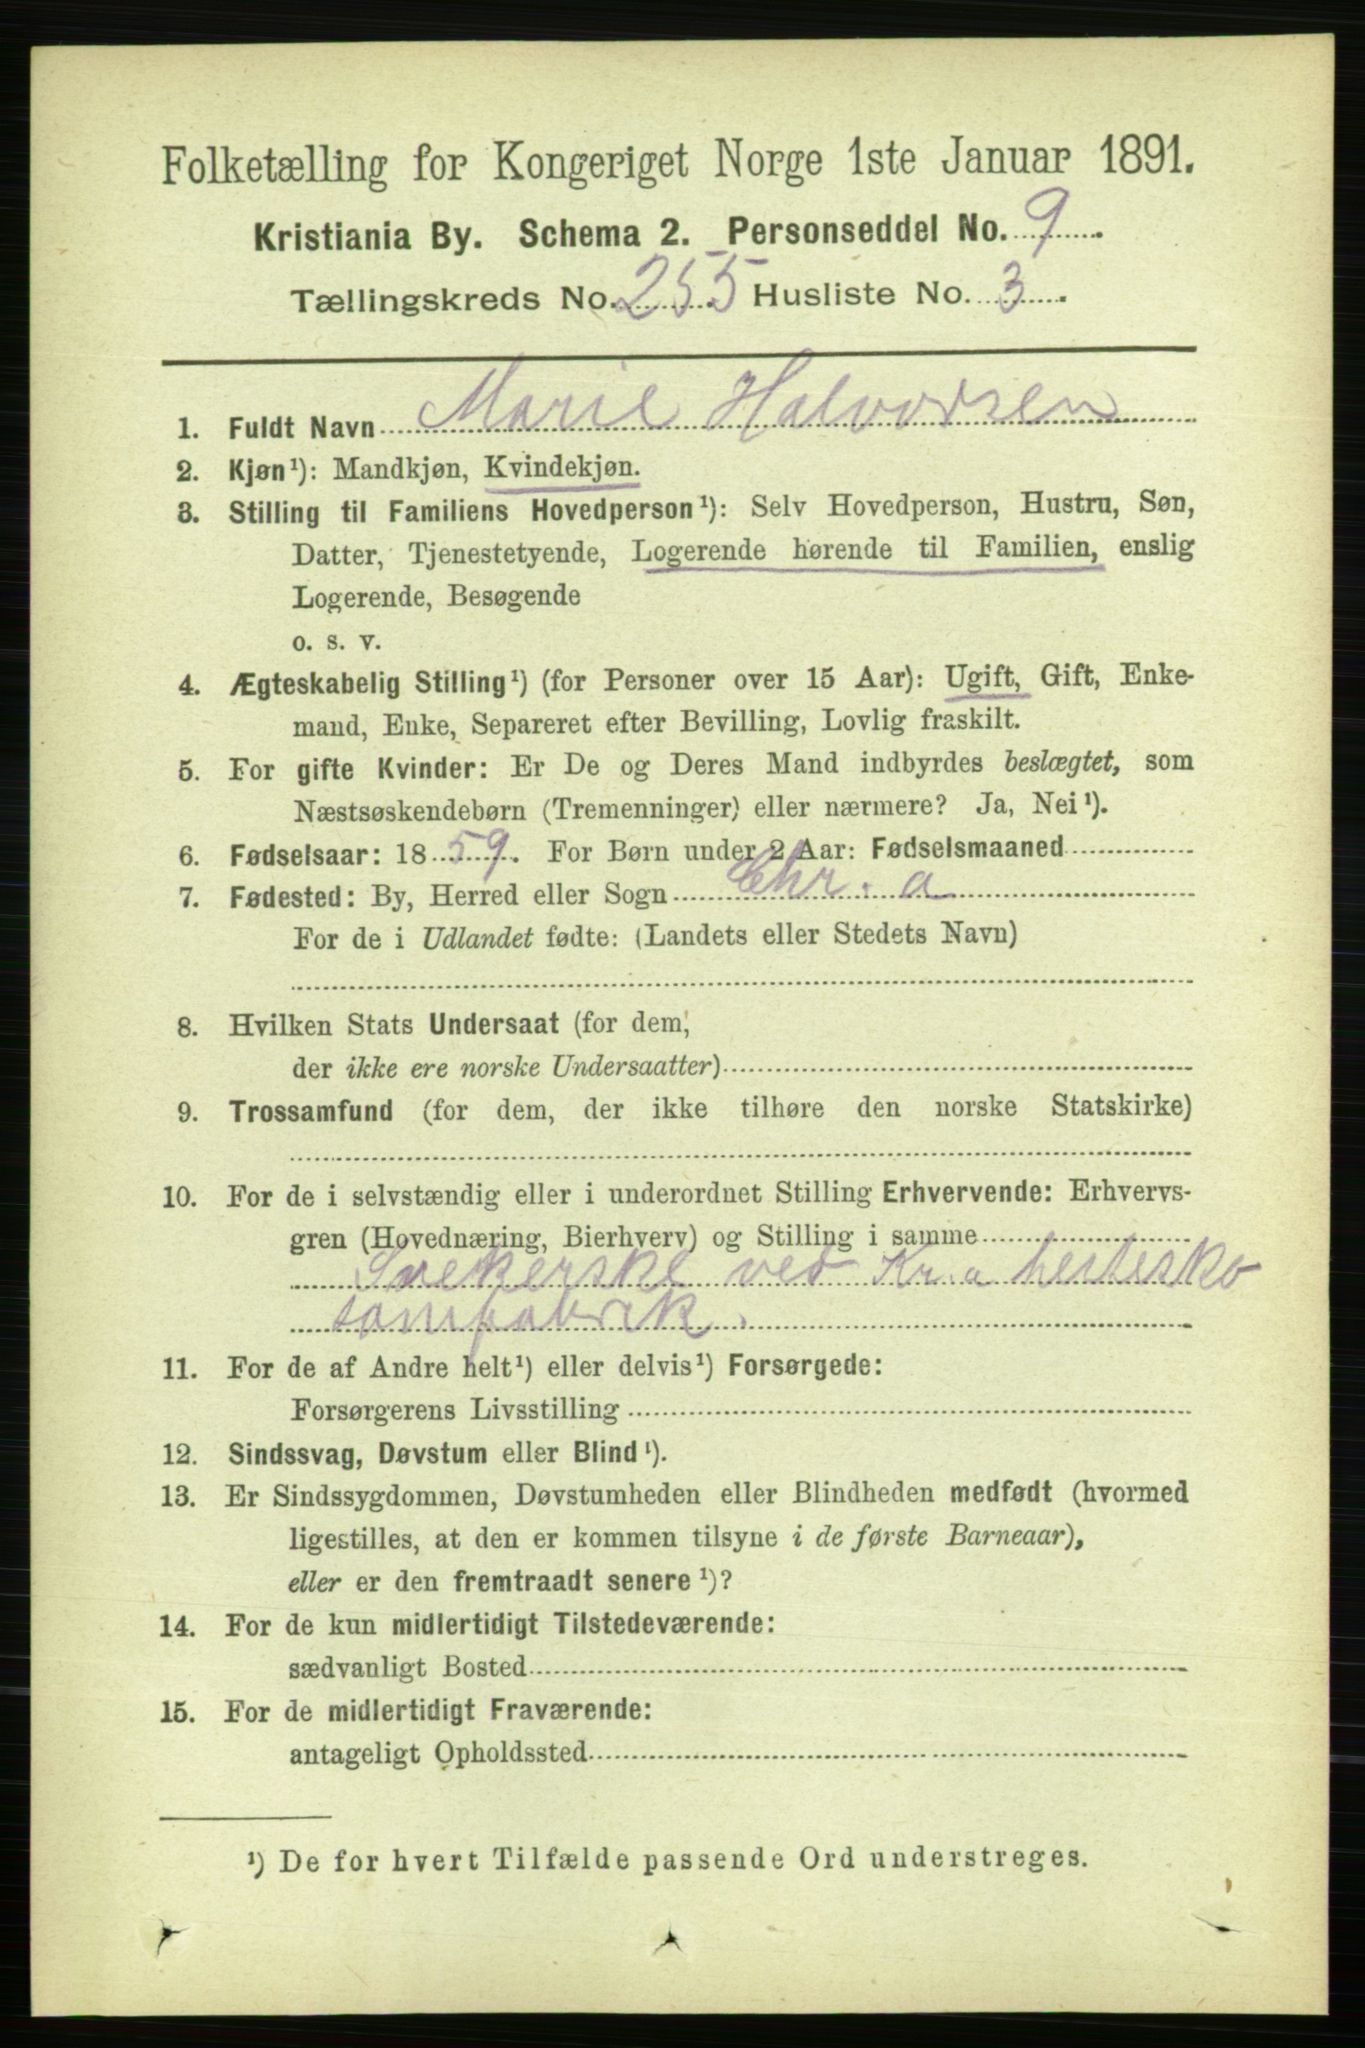 Folketælling for Kongeriget Norge 1ste Januar 1891.
Kristiania By. Schema 2. Personseddel No. 9
Tællingskreds No. 255 Husliste No. 3
1. Fuldt Navn Marie Halvorsen
2. Kjøn¹): Mandkjøn, Kvindekjøn.
3. Stilling til Familiens Hovedperson¹): Selv Hovedperson, Hustru, Søn,
Datter, Tjenestetyende, Logerende hørende til Familien, enslig
Logerende, Besøgende
o. s. v.
4. Ægteskabelig Stilling¹) (for Personer over 15 Aar): Ugift, Gift, Enke-
mand, Enke, Separeret efter Bevilling, Lovlig fraskilt.
5. For gifte Kvinder: Er De og Deres Mand indbyrdes beslægtet, som
Næstsøskendebørn (Tremenninger) eller nærmere? Ja, Nei¹).
6. Fødselsaar: 1859. For Børn under 2 Aar: Fødselsmaaned
7. Fødested: By, Herred eller Sogn Chr. a
For de i Udlandet fødte: (Landets eller Stedets Navn)
8. Hvilken Stats Undersaat (for dem,
der ikke ere norske Undersaatter)
9. Trossamfund (for dem, der ikke tilhøre den norske Statskirke)
10. For de i selvstændig eller i underordnet Stilling Erhvervende: Erhvervs-
gren (Hovednæring, Bierhverv) og Stilling i samme
ved Kr.a hestesko
sømfabrik.
11. For de af Andre helt¹) eller delvis¹) Forsørgede:
Forsørgerens Livsstilling
12. Sindssvag, Døvstum eller Blind¹).
13. Er Sindssygdommen, Døvstumheden eller Blindheden medfødt (hvormed
ligestilles, at den er kommen tilsyne i de første Barneaar),
eller er den fremtraadt senere¹)?
14. For de kun midlertidigt Tilstedeværende:
sædvanligt Bosted
15. For de midlertidigt Fraværende:
antageligt Opholdssted
¹) De for hvert Tilfælde passende Ord understreges.